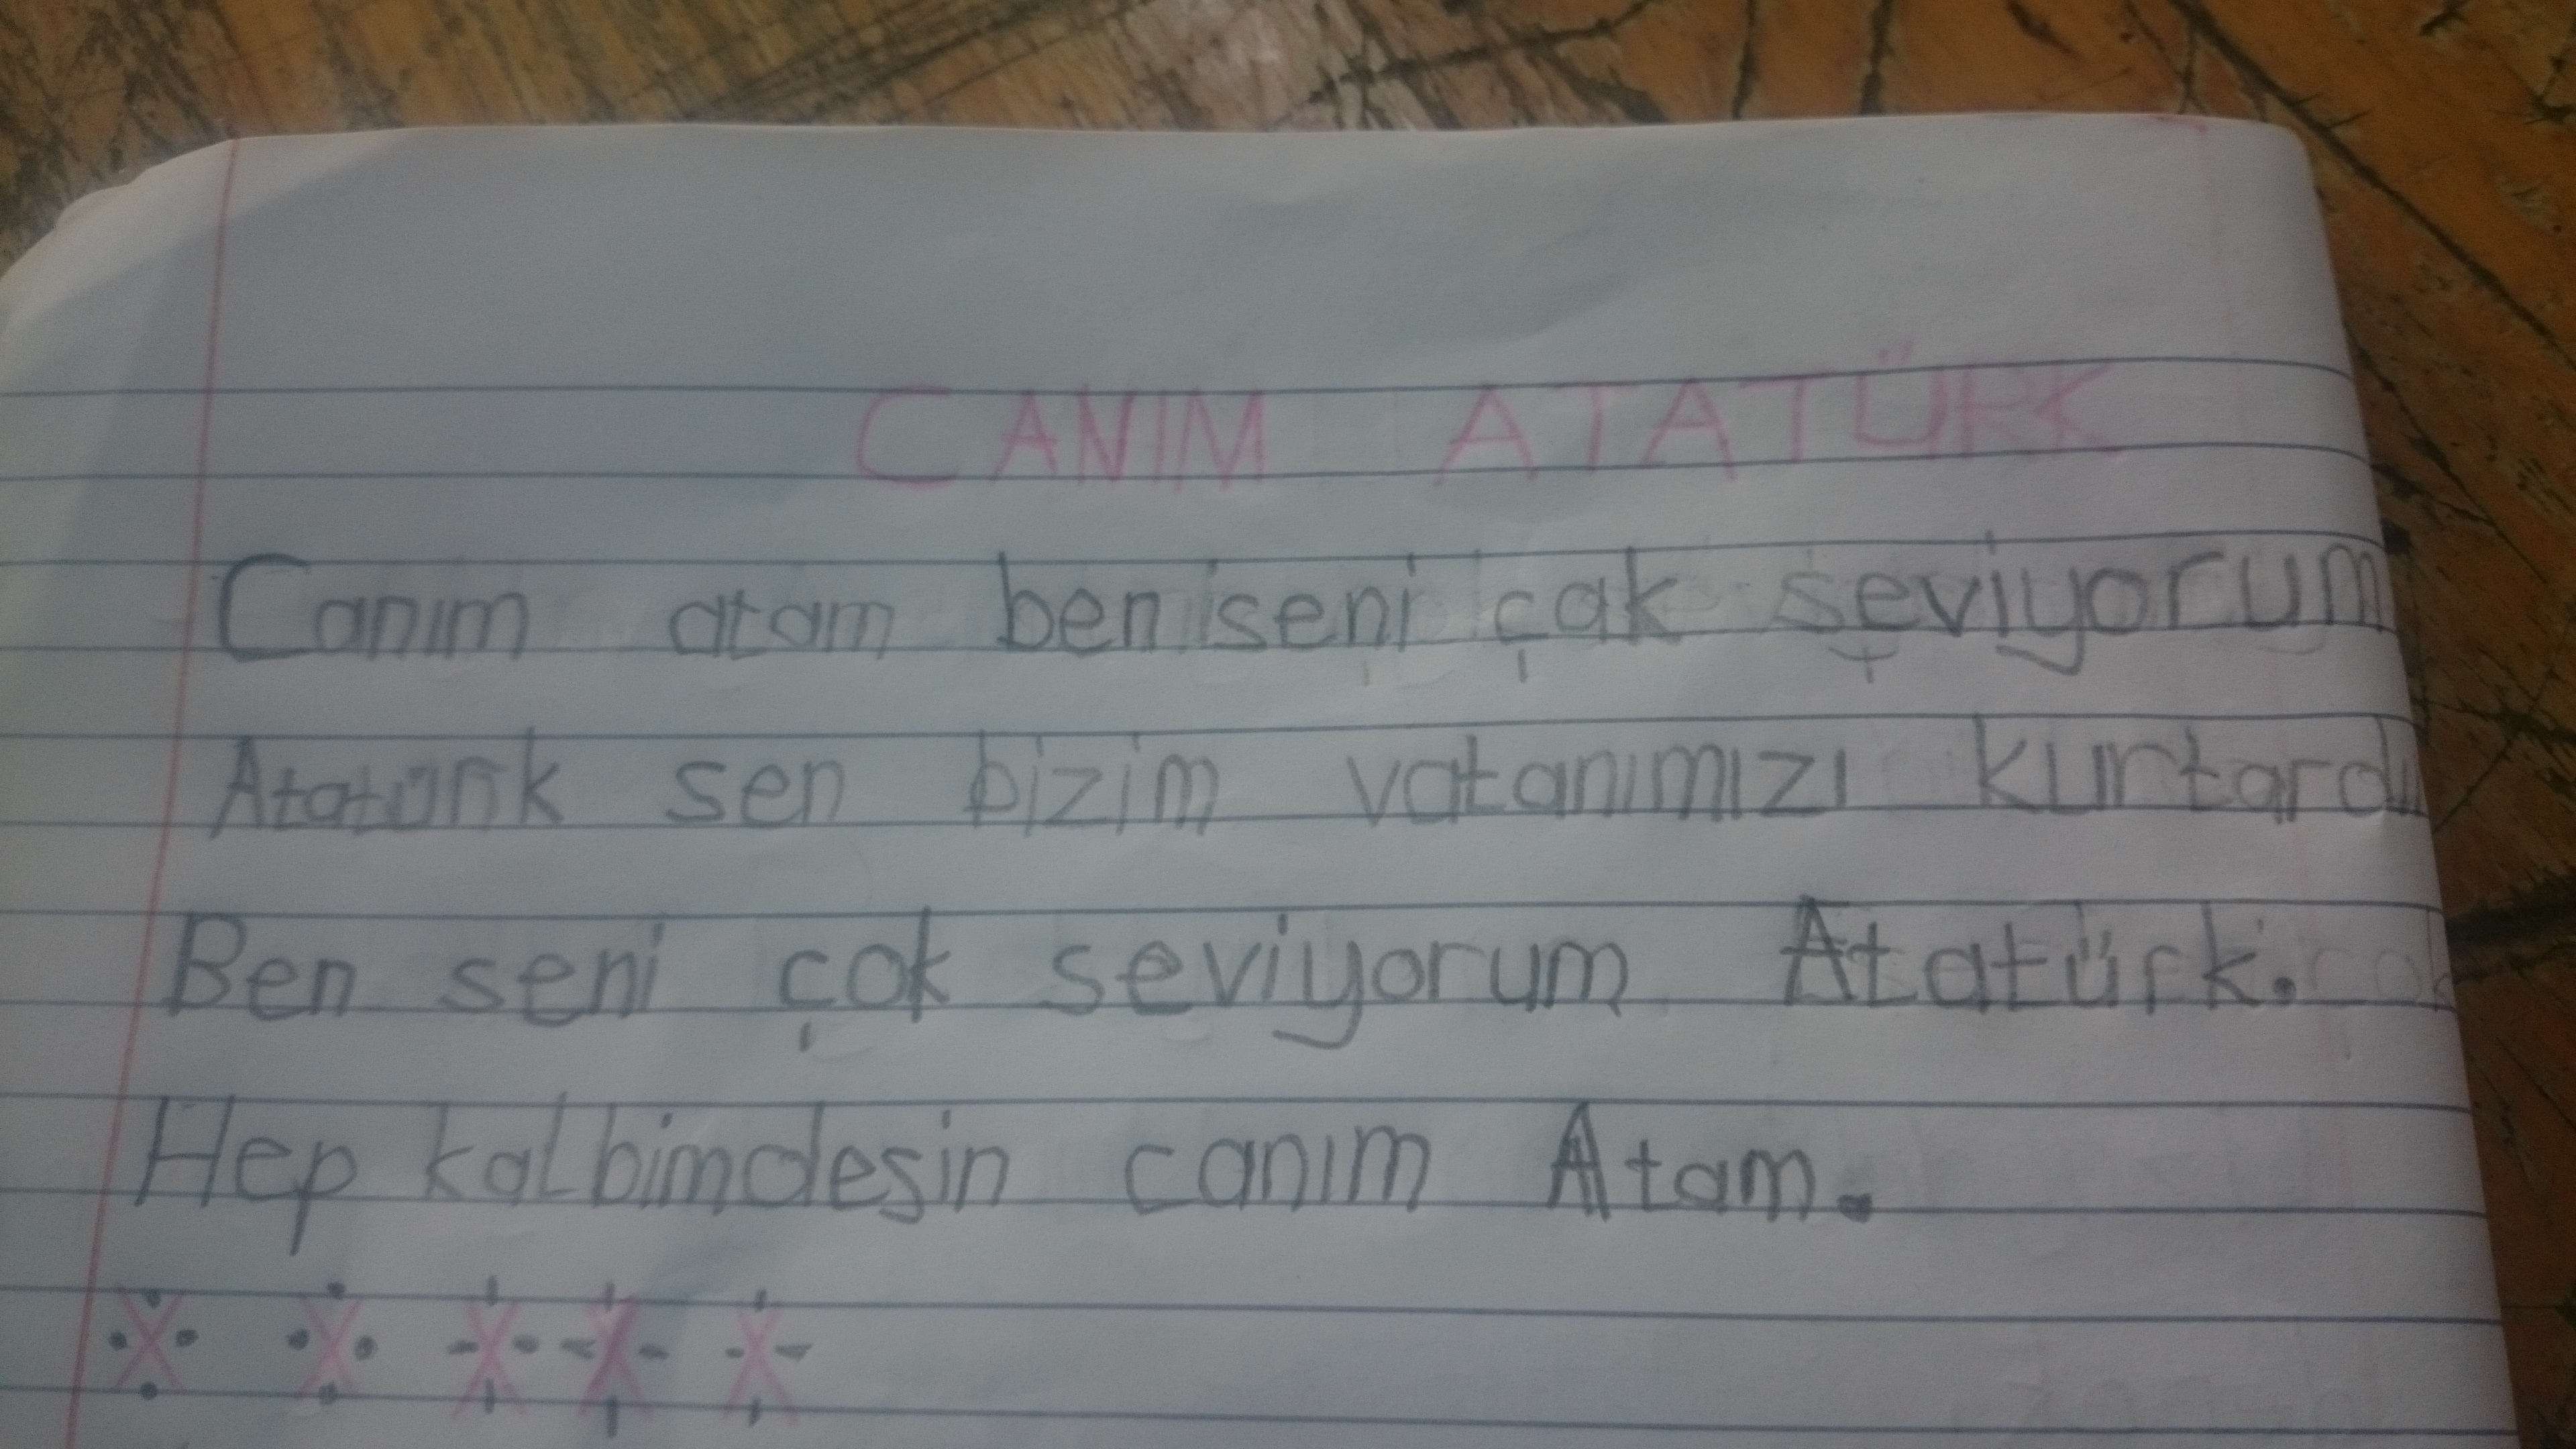 CANIM ATATÜRK
Canım atam ben seni çak seviyorum
Atatürk sen bizim vatanımızı kurtardı
Ben seni çok seviyorum Atatürk.
Hep kalbimdesin canım Atam.